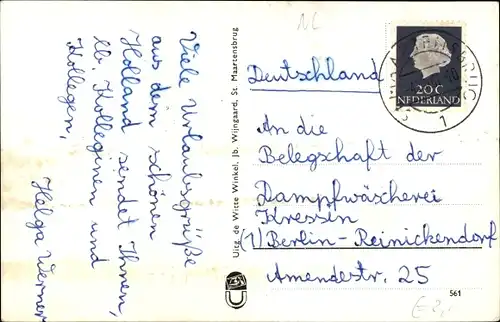 Viele Urlaubsgrüße
aus dem schönen
Holland sendet Ihnen,
lb. Kolleginen und
Kollegen,
Helga Werner
Uitg. de Witte Winkel, Jb. Wijngaard, St. Maartensbrug
NL
20 C
NEDERLAND
1
Deutschland
An die
Belegschaft der
Dampfwäscherei
Kressin
(1) Berlin-Reinickendorf
Amendestr. 25
561